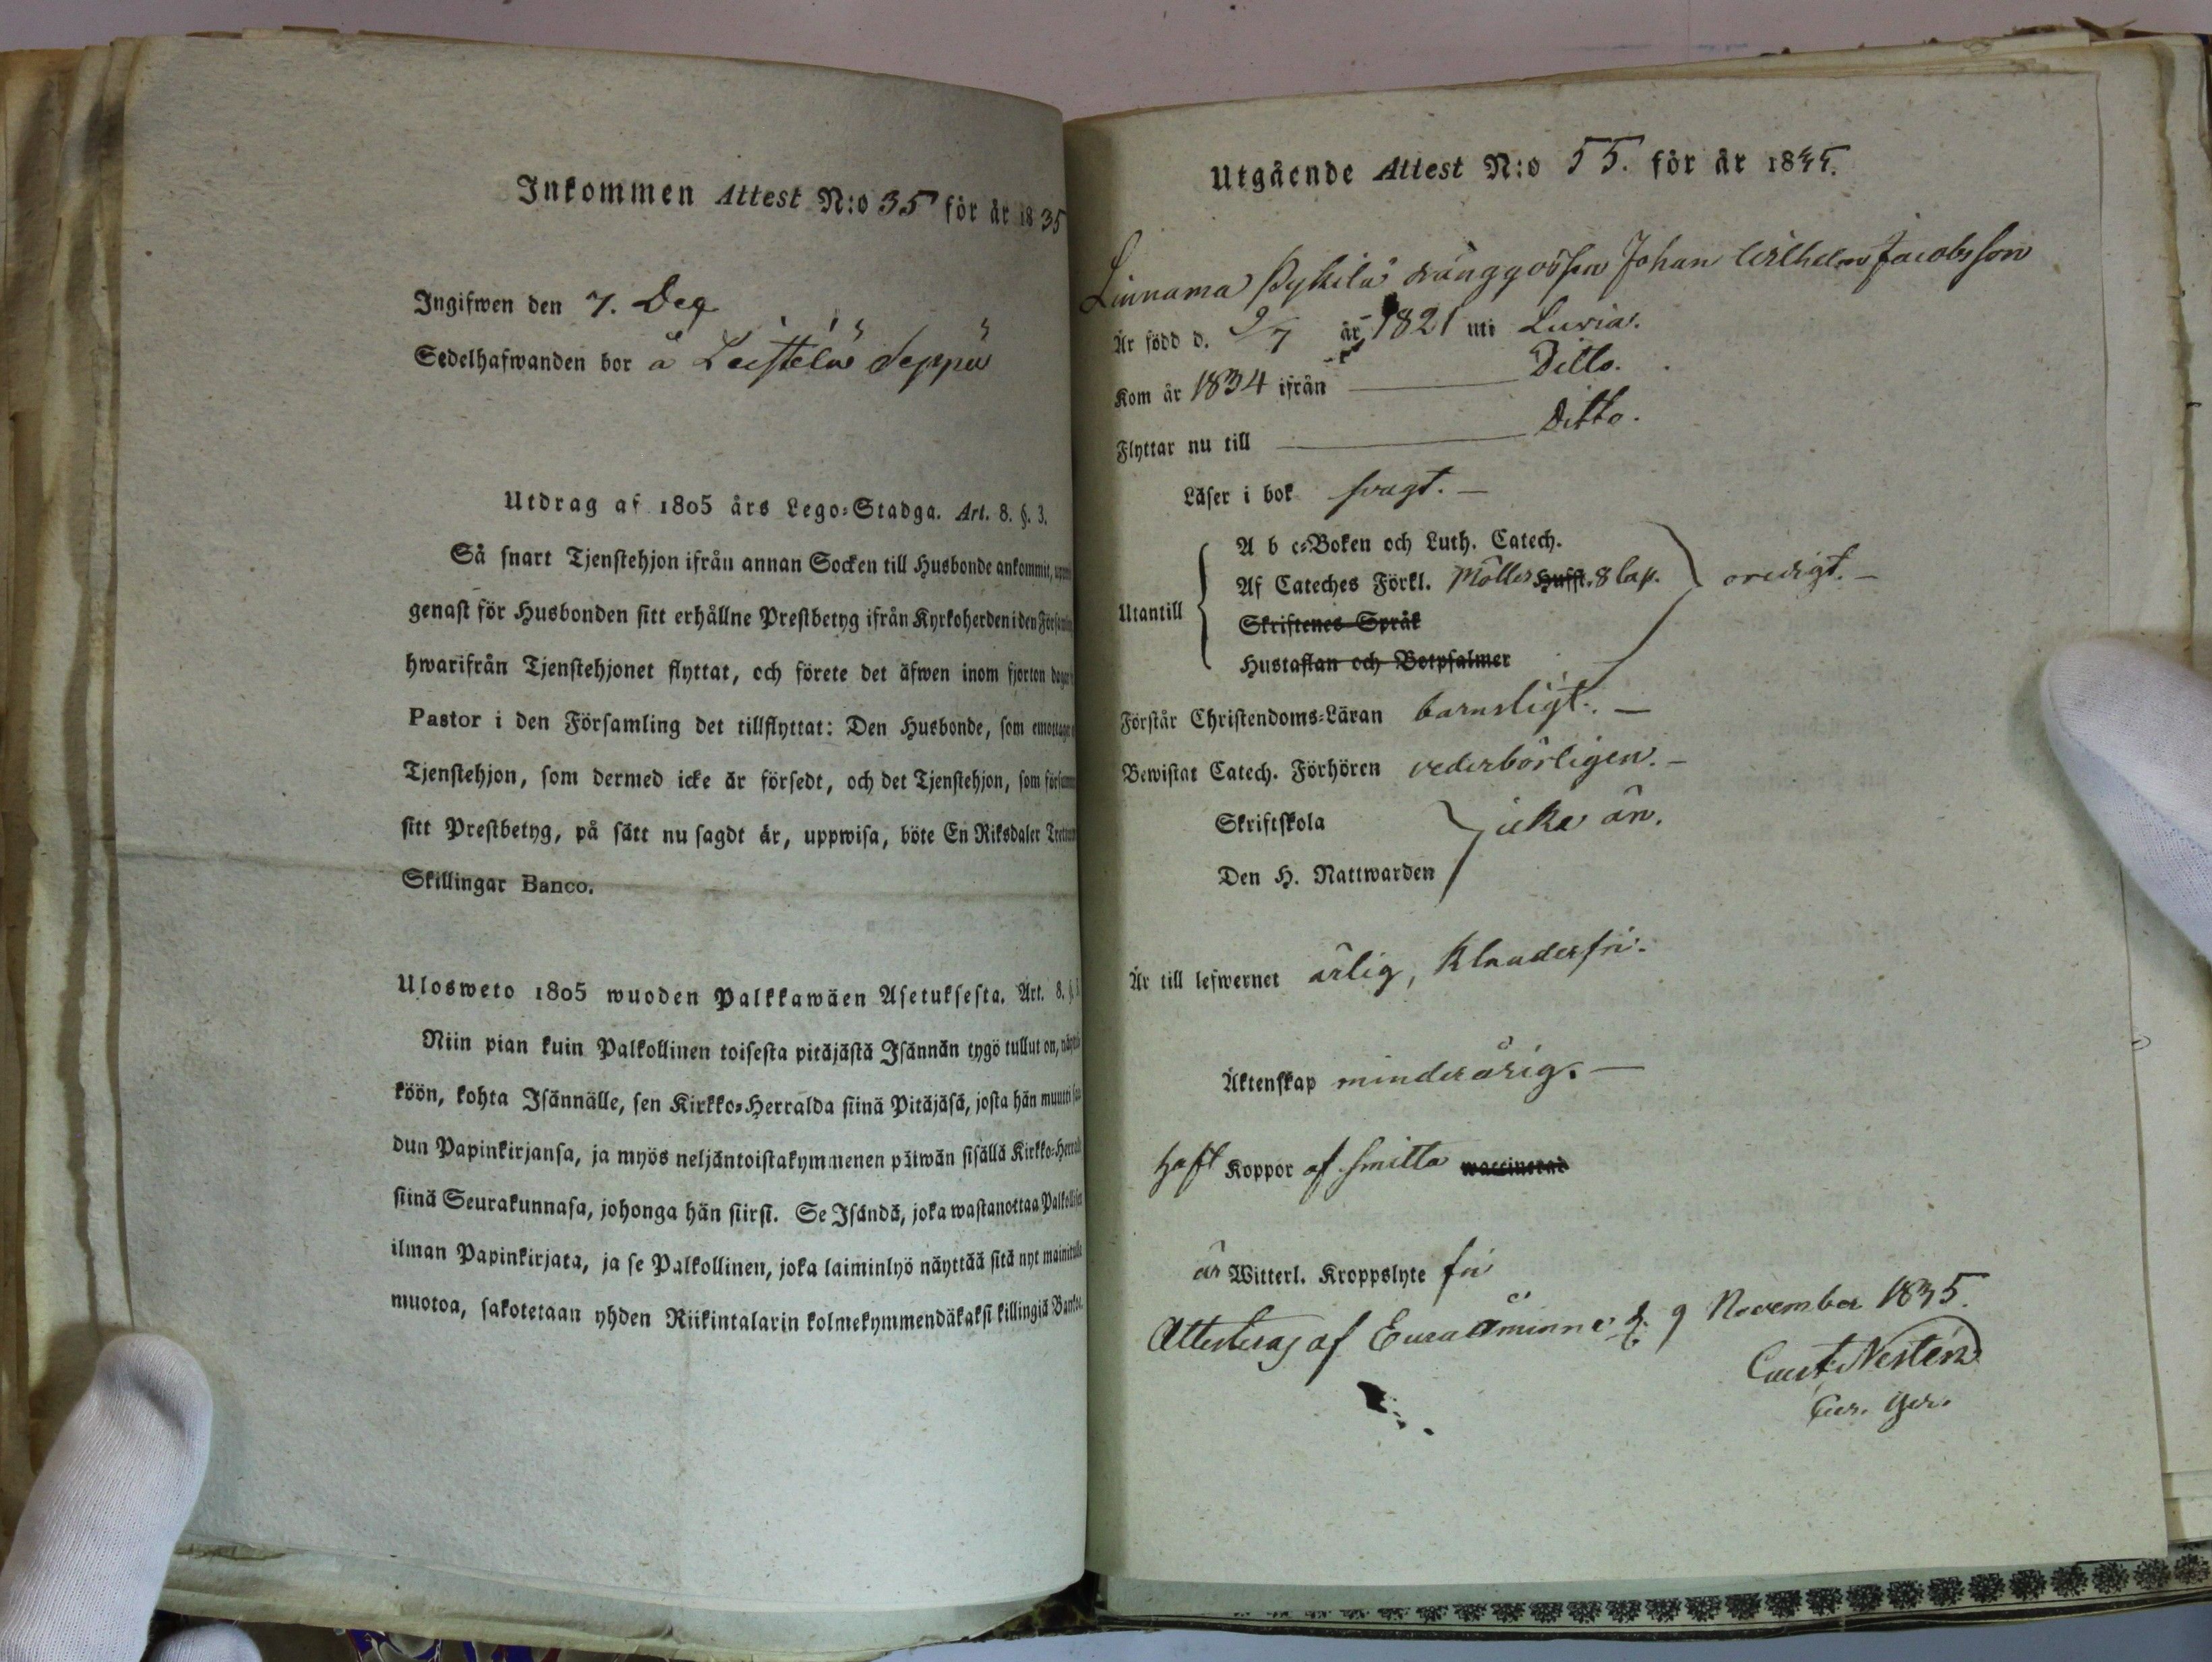 Inkommen Attest N:o 35 för år 1835
Ingifwen den 7. Dec
Sedelhafwanden bor å Leistelä Seppä
Utdrag af 1805 års Lego-Stadga. Art. 8. §. 3.
Så snart Tjenstehjon ifrån annan Socken till Husbonde ankommit,
genast för Husbonden sitt erhållne Prestbetyg ifrån Kyrkoherden i den
hwarifrån Tjenstehjonet flyttat, och förete det äfwen inom fjorton
Pastor i den Församling det tillflyttat: Den Husbonde, som
Tjenstehjon, som dermed icke är försedt, och det Tjenstehjon, som
sitt Prestbetyg, på sätt nu sagdt är, uppwisa, böte En Riksdaler
Skillingar Banco.
Ulosweto 1805 wuoden Palkkawäen Asetuksesta. Art. 8.
Niin pian kuin Palkollinen toisesta pitäjästä Isännän tygö tullut on,
köön, kohta Isännälle, sen Kirkko-Herralda siinä Pitäjäsä, josta hän muutti
dun Papinkirjansa, ja myös neljäntoistakymmenen päiwän sisällä
siinä Seurakunnasa, johonga hän siirsi. Se Isändä, joka wastanottaa
ilman Papinkirjata, ja se Palkollinen, joka laiminlyö näyttää sitä nyt
muotoa, sakotetaan yhden Riikintalarin kolmekymmendäkaksi killingiä
Utgående Attest N:o 55. för år 1835.
Linnama Pykilä dränggossen Johan Wilhelm Jacobsson
Är född d. 9/7 år 1821 uti Luvia.
Kom år 1834 ifrån Ditto.
Flyttar nu till Ditto.
Läser i bok svagt. —
A b c-Boken och Luth. Catech.
Af Cateches Förkl. Möllers Hufft. 8 Cap.
Utantill oredigt. —
Skriftenes Språk
Hustaflan och Botpsalmer
Förstår Christendoms-Läran barnsligt. —
Bewistat Catech. Förhören vederbörligen. —
Skriftskola
icke än.
Den H. Nattwarden
Är till lefwernet ärlig, klanderfri.
Äktenskap minderårig. —
haft Koppor af smitta waccinerad
är Witterl. Kroppslyte fri
Attesteras af Euraåminne d. 9 November 1835.
Nestén